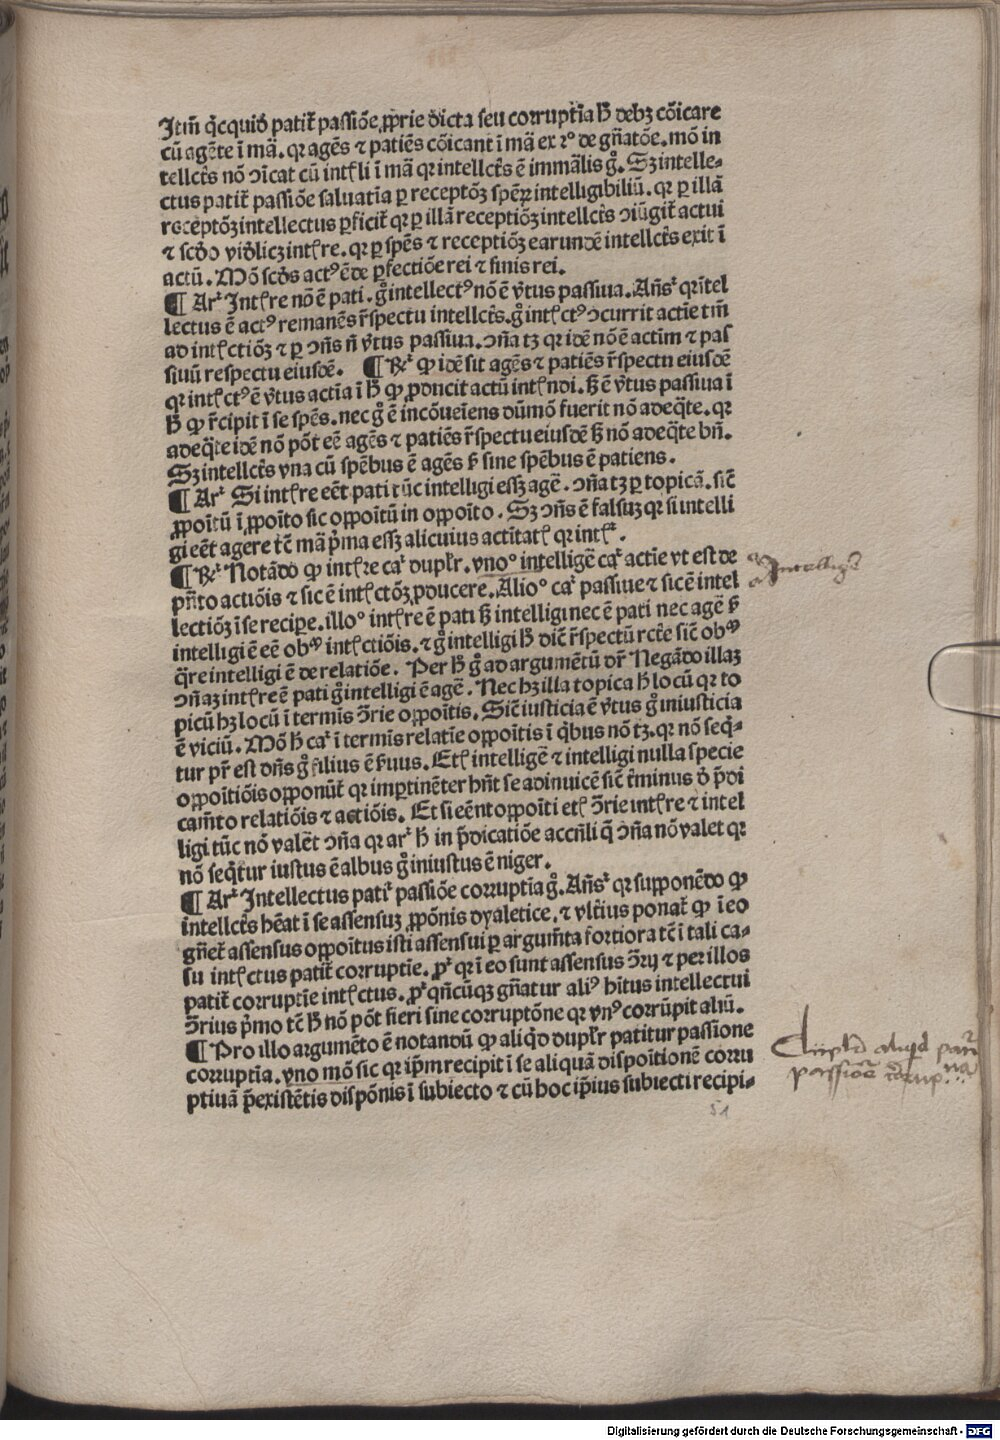 Itm̄ q̄cquid patit᷑ passiōe ꝓprie dicta seu corruptīa hꝰ debꝫ cōicare
cū agēte ī mā. qꝛ agēs ⁊ patiēs cōicant ī mā ex 2° de gn̄atōe. mō in
tellct̄s nō ꝯicat cū intƚli ī mā qꝛ intellct̄s ē immālis gͦ. Sꝫ intelle⸗
ctus patit᷑ passiōe saluatīa ꝑ receptōꝫ spēꝝ intelligibiliū. qꝛ ꝑ illā
receptōꝫ intellectus ꝑficit᷑ qꝛ ꝑ illā receptiōꝫ intellct̄s ꝯiūgit᷑ actui
⁊ scd̄o vid̄licꝫ intƚre. qꝛ ꝑ spēs ⁊ receptiōꝫ earundē intellct̄s exit ī
actū. Mō scd̄s actꝰ ē de ꝑfectiōe rei ⁊ finis rei.
¶ Ar᷑ Intƚre nō ē pati. gͦ intellectꝰ nō ē v̄tus passiua. Añs᷑ qꝛ īntel
lectus ē actꝰ remanēs r̄spectu intellct̄s. gͦ intƚctꝰ ꝯcurrit actīe tm̄
ad intƚctiōꝫ ⁊ ꝑ ꝯn̄s n̄ v̄tus passiua. ꝯn̄a tꝫ qꝛ idē nō ē actim̄ ⁊ pas
siuū respectu eiusdē. ¶ Rꝛ᷑ ꝙ idē sit agēs ⁊ patiēs r̄spectu eiusdē
qꝛ intƚctꝰ ē v̄tus actīa ī hꝰ ꝙ ꝓducit actū intƚndi. sꝫ ē v̄tus passiua ī
hꝰ ꝙ r̄cipit ī se spēs. nec gͦ ē incōueīens dūmō fuerit nō adeq̄te. qꝛ
adeq̄te idē nō pōt eē agēs ⁊ patiēs r̄spectu eiusdē sꝫ nō adeq̄te bn̄.
Sꝫ intellct̄s vna cū spēbus ē agēs sꝫ sine spēbus ē patiens.
¶ Ar᷑ Si intƚre eēt pati tūc intelligi essꝫ agē. ꝯn̄a tꝫ ꝑ topicā. sic̄
ꝓpoitū ī ꝓpoito sic oppoitū in oppoito. Sꝫ ꝯn̄s ē falsuꝫ qꝛ si intelli
gi eēt agere tē mā p̄ma essꝫ alicuius actītatƚ qꝛ intƚ᷑.
¶ Rꝛ᷑ Notādo ꝙ intƚre ca᷑ᵗ duplr̄. vno° intelligē ca᷑ᵗ actīe vt est de
p̄n̄to actiōis ⁊ sic ē intƚctōꝫ ꝓducere. Alio° ca᷑ᵗ passiue ⁊ sic ē intel
lectiōꝫ ī se recipe. illo° intƚre ē pati sꝫ intelligi nec ē pati nec agē sꝫ
intelligi ē eē obᵐ intƚctiōis. ⁊ gͦ intelligi hꝰ dic̄ r̄spectū rc̄te sic̄ obᵐ
q̄re intelligi ē de relatiōe. Per hꝰ gͦ ad argumētū dr̄ Negādo illaꝫ
ꝯn̄aꝫ intƚre ē pati gͦ intelligi ē agē. Nec hꝫ illa topica hꝰ locū qꝛ to
picū hꝫ locū ī termis ꝯ̄rie oppoitis. Sic̄ iusticia ē v̄tus gͦ iniusticia
ē viciū. Mō hꝰ ca᷑ᵗ ī termis relatīe oppoitis ī q̄bus nō tꝫ. qꝛ nō seq̄⸗
tur pr̄ est dn̄s gͦ filius ē ẜuus. Etƚ intelligē ⁊ intelligi nulla specie
oppoitiōis opponūt᷑ qꝛ imꝑtinēter hn̄t se adinuicē sic̄ t̄minus d̄ p̄di
cam̄to relatiōis ⁊ actiōis. Et si eēnt oppoiti etƚ ꝯ̄rie intƚre ⁊ intel
ligi tūc nō valēt ꝯn̄a qꝛ ar᷑ hꝰ in p̄dicatiōe accn̄li q̄ ꝯn̄a nō valet qꝛ
nō seq̄tur iustus ē albus gͦ iniustus ē niger.
¶ Ar᷑ Intellectus patit᷑ passiōe corruptīa gͦ. Añs᷑ qꝛ supponēdo ꝙ
intellct̄s hēat ī se assensuꝫ ꝓpōnis dyaletice, ⁊ vlt̄ius ponat᷑ ꝙ ī eo
gn̄et᷑ assensus oppoitus isti assensui ꝑ argum̄ta fortiora tē ī tali ca⸗
su intƚctus patit᷑ corruptīe. pꝛ᷑ qꝛ ī eo sunt assensus ꝯ̄rij ⁊ per illos
patit᷑ corruptīe intƚctus. pꝛ᷑ qn̄cūqꝫ gn̄atur aliꝰ hītus intellectui
ꝯ̄rius p̄mo tē hꝰ nō pōt fieri sine corruptōne qꝛ vnꝰ corrūpit aliū.
¶ Pro illo argumēto ē notandū ꝙ aliq̄d duplr̄ patitur passiōne
corruptīa. vno mō sic qꝛ ip̄m recipit ī se aliquā dispoitionē corru
ptiuā p̄existētis dispōnis ī subiecto ⁊ cū hoc ip̄ius subiecti recipi⸗
Intellige᷑
Duplr̄ aliq̄d pati᷑
passiōe corrup.
51
Digitalisierung gefördert durch die Deutsche Forschungsgemeinschaft - DFG